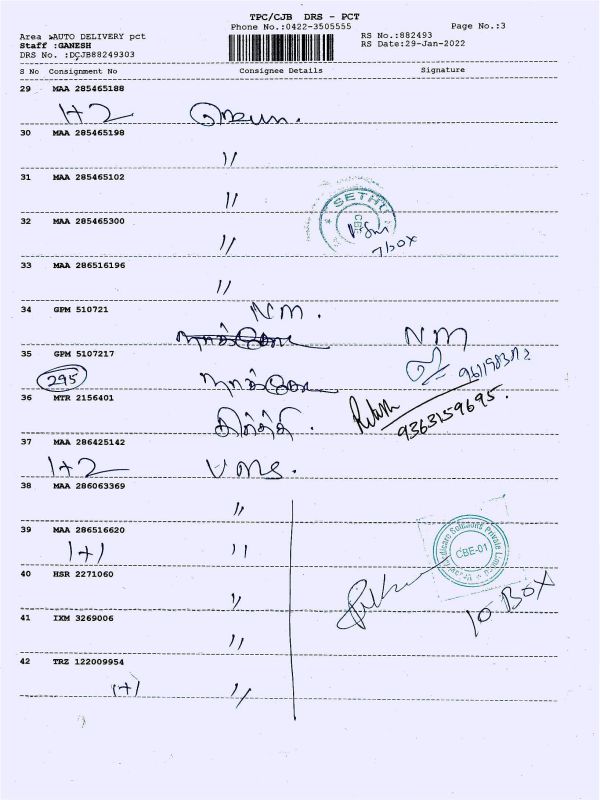 TPC/CJB DRS - PCT
Phone No.:0422-3505555
Page No.:3
Area :AUTO DELIVERY pct
RS No.:882493
Staff :GANESH
RS Date:29-Jan-2022
DRS No. :DCJB88249303
S No Consignment No Consignee Details Signature
29 MAA 285465188
1+2
30 MAA 285465198
"
31 MAA 285465102
"
SETHU
CBE
32 MAA 285465300
" 7 box
33 MAA 286516196
"
34 GPM 510721
NM.
NM
35 GPM 5107217
295
36 MTR 2156401
9363159695.
37 MAA 286425142
1+2
38 MAA 286063369
"
39 MAA 286516620
1+1 "
CBE-01
40 HSR 2271060
" 10 BOX
41 IXM 3269006
"
42 TRZ 122009954
1+1 "